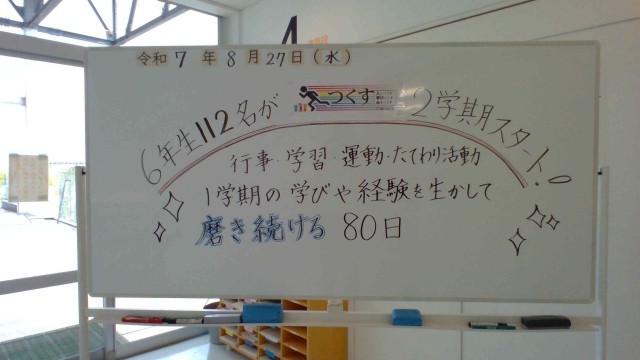 令和7年8月27日(水)
6年生112名が つくす 2学期スタート!
行事・学習・運動・たてわり活動
1学期の学びや経験を生かして
磨き続ける 80日